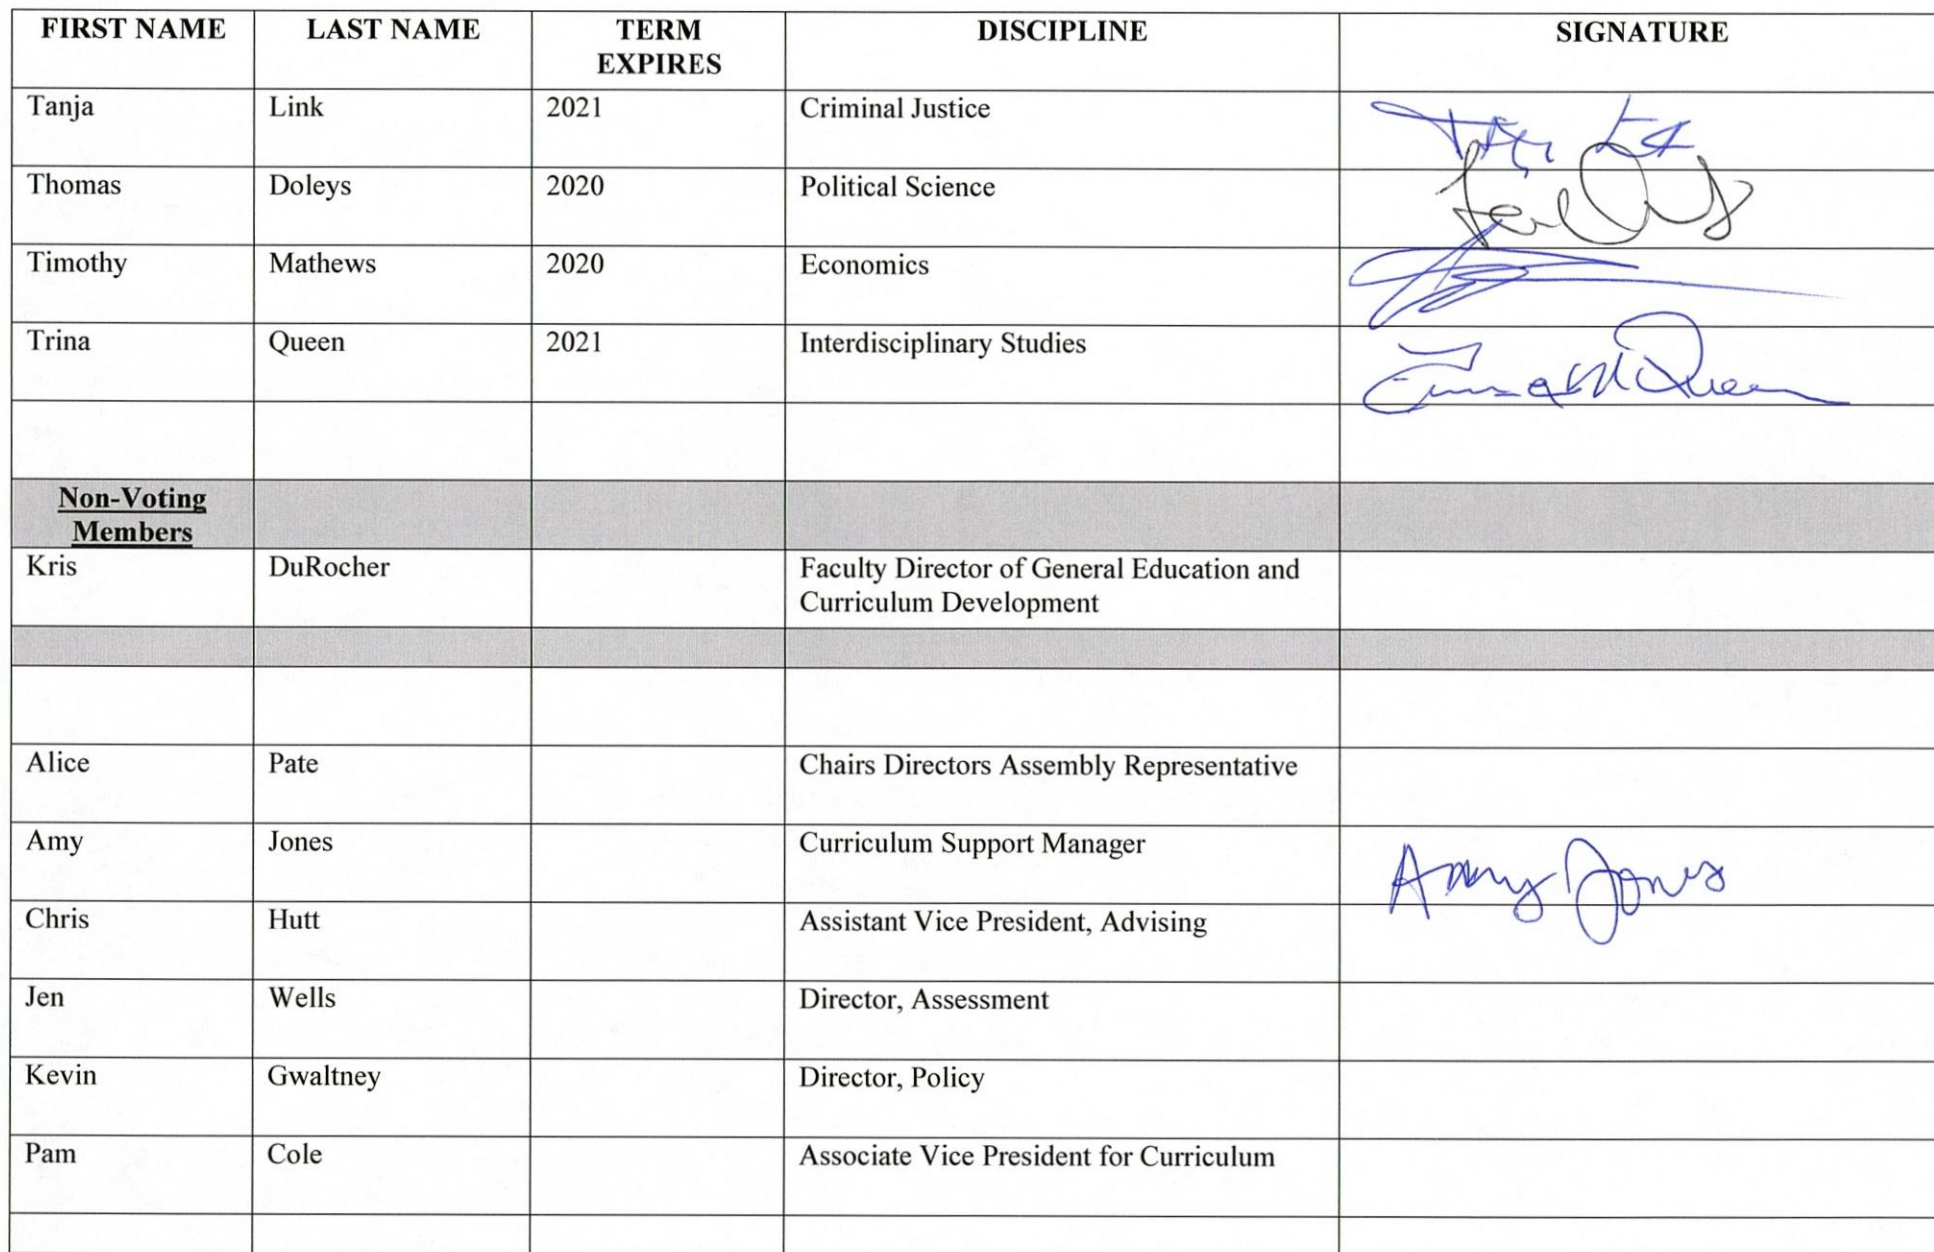 FIRST NAME LAST NAME TERM EXPIRES DISCIPLINE SIGNATURE
Tanja Link 2021 Criminal Justice
Thomas Doleys 2020 Political Science
Timothy Mathews 2020 Economics
Trina Queen 2021 Interdisciplinary Studies Queen
Non-Voting
Members
Kris DuRocher Faculty Director of General Education and
Curriculum Development
Alice Pate Chairs Directors Assembly Representative
Amy Jones Curriculum Support Manager Amy Jones
Chris Hutt Assistant Vice President, Advising
Jen Wells Director, Assessment
Kevin Gwaltney Director, Policy
Pam Cole Associate Vice President for Curriculum